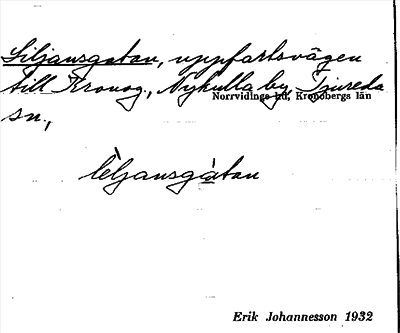 Siljansgatan, uppfartsvägen
till Kronog., Nykulla by, Tjureda
Norrvidinge hd, Kronobergs län
sn.,
lèljansgàtan
Erik Johannesson 1932